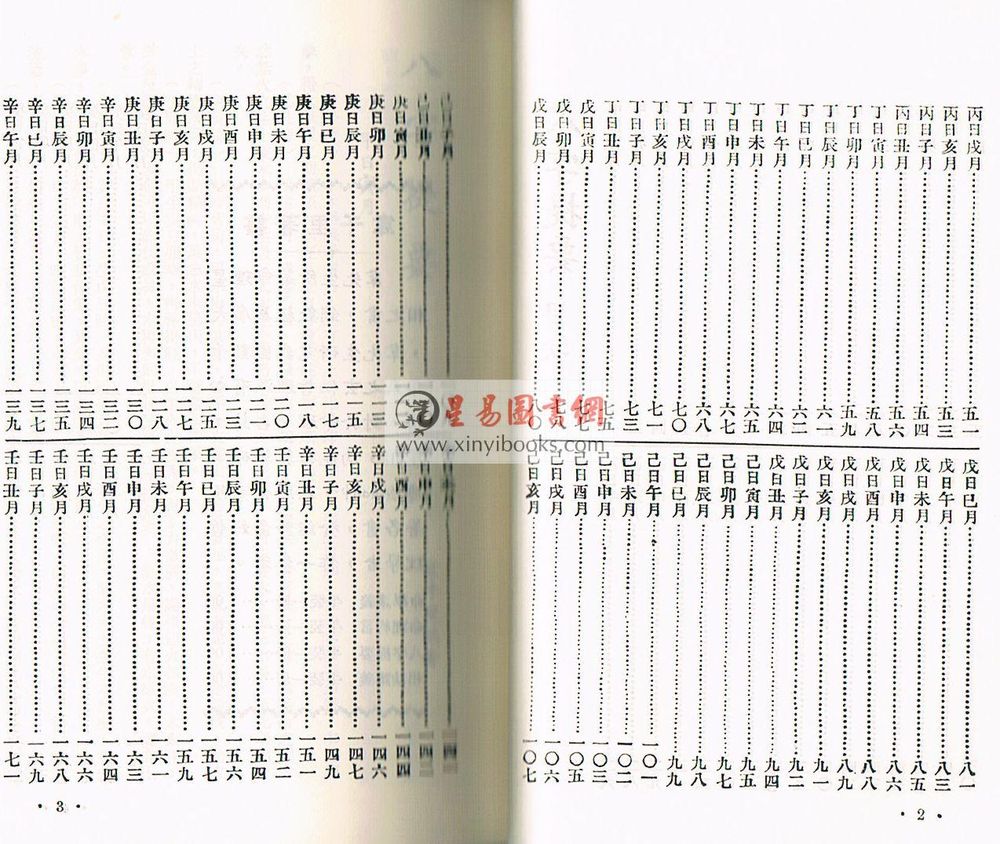 丙日戌月⋯⋯五一
丙日亥月⋯⋯五三
丙日子月⋯⋯五四
丙日丑月⋯⋯五六
丁日寅月⋯⋯五八
丁日卯月⋯⋯五九
丁日辰月⋯⋯六一
丁日巳月⋯⋯六二
丁日午月⋯⋯六四
丁日未月⋯⋯六五
丁日申月⋯⋯六七
丁日酉月⋯⋯六八
丁日戌月⋯⋯七〇
丁日亥月⋯⋯七一
丁日子月⋯⋯七三
丁日丑月⋯⋯七五
戊日寅月⋯⋯
戊日卯月⋯⋯
戊日辰月⋯⋯八〇
戊日巳月⋯⋯八一
戊日午月⋯⋯八三
戊日未月⋯⋯八五
戊日申月⋯⋯八六
戊日酉月⋯⋯八八
戊日戌月⋯⋯八九
戊日亥月⋯⋯九一
戊日子月⋯⋯九二
戊日丑月⋯⋯九四
己日寅月⋯⋯九五
己日卯月⋯⋯九六
己日辰月⋯⋯九八
己日巳月⋯⋯九九
己日午月⋯⋯一〇一
己日未月⋯⋯一〇二
己日申月⋯⋯一〇三
己日酉月⋯⋯一〇五
己日戌月⋯⋯一〇六
己日亥月⋯⋯一〇七
• 2 •
己日子月⋯⋯
己日丑月⋯⋯
庚日寅月⋯⋯
庚日卯月⋯⋯一一三
庚日辰月⋯⋯一一五
庚日巳月⋯⋯一一七
庚日午月⋯⋯一一八
庚日未月⋯⋯一二〇
庚日申月⋯⋯一二一
庚日酉月⋯⋯一二三
庚日戌月⋯⋯一二五
庚日亥月⋯⋯一二六
庚日子月⋯⋯一二八
庚日丑月⋯⋯一三〇
辛日寅月⋯⋯一三二
辛日卯月⋯⋯一三四
辛日辰月⋯⋯一三五
辛日巳月⋯⋯一三七
辛日午月⋯⋯一三九
辛日申月⋯⋯
辛日酉月⋯⋯一四四
辛日戌月⋯⋯一四六
辛日亥月⋯⋯一四七
辛日子月⋯⋯一四九
辛日丑月⋯⋯一五一
壬日寅月⋯⋯一五二
壬日卯月⋯⋯一五四
壬日辰月⋯⋯一五六
壬日巳月⋯⋯一五七
壬日午月⋯⋯一五九
壬日未月⋯⋯一六一
壬日申月⋯⋯一六三
壬日酉月⋯⋯一六四
壬日戌月⋯⋯一六六
壬日亥月⋯⋯一六八
壬日子月⋯⋯一六九
壬日丑月⋯⋯一七一
• 3 •
星易圖書網
www.xinyibooks.com